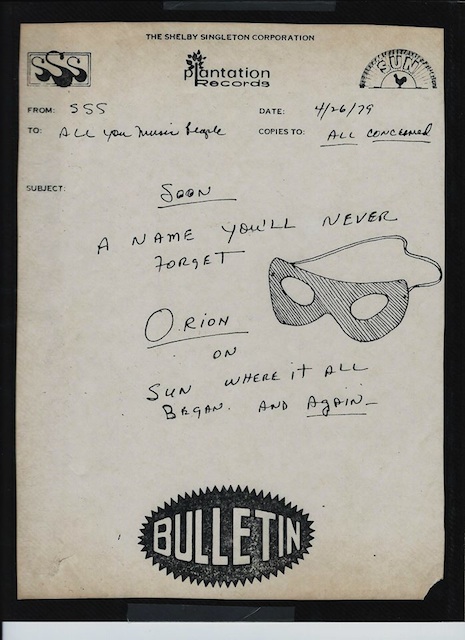 THE SHELBY SINGLETON CORPORATION
SSS
Plantation Records
SUN
FROM: SSS
DATE: 4/26/79
TO: All you Music People
COPIES TO: ALL CONCERNED
SUBJECT:
SOON
A NAME YOU'LL NEVER
FORGET
ORION
ON
SUN WHERE IT ALL
BEGAN. AND AGAIN-
BULLETIN